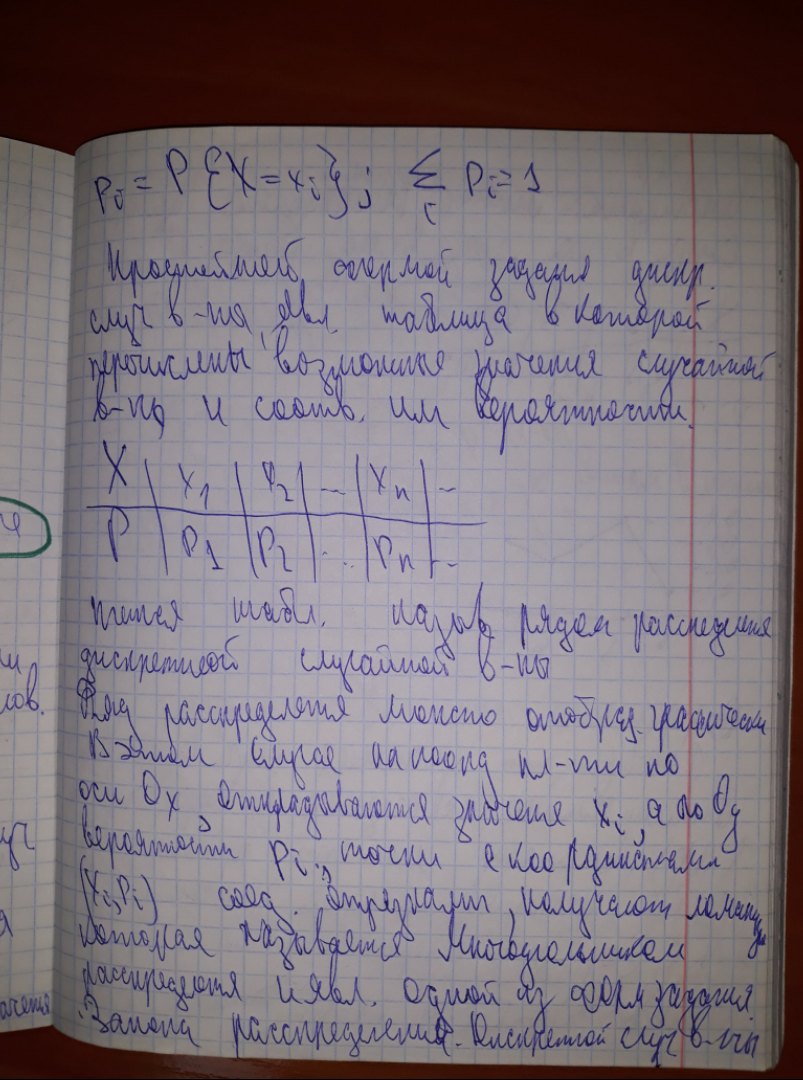 Pi = P{X = xi}; Σ Pi = 1
i
Простейшей формой задания дискр.
случ в-на явл. таблица в которой
перечислены возможные значения случайной
в-ны и соотв. им вероятности.
X | x1 | x2 | ... | xn | ...
P | P1 | P2 | ... | Pn | ...
табл. назыв рядом
дискретной случайной в-ны
Ряд распределения можно отображ. графически
В этом случае на коорд пл-ти по
оси Ox откладываются значения xi, а по Oy
вероятности Pi, точки с координатами
(xi, Pi) соед. отрезками, получают ломаную
которая называется Многоугольником
и явл. одной из форм задания
Закона распределения дискретной случ в-ны
че
ли
лов.
уч
я
ачения